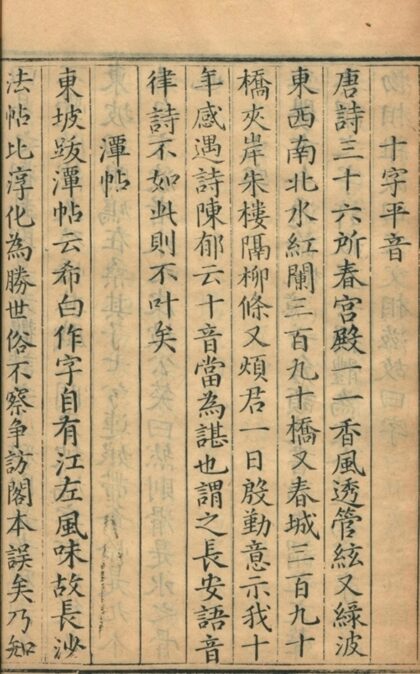 十字平音
唐詩三十六所春宮殿一一香風透管絃又綠波
東西南北水紅闌三百九十橋又春城三百九十
橋夾岸朱樓隔柳條又煩君一日殷勤意示我十
年感遇詩陳郁云十音當為諶也謂之長安語音
律詩不如此則不叶矣
潭帖
東坡跋潭帖云希白作字自有江左風味故長沙
法帖比淳化為勝世俗不察争訪閣本誤矣乃知